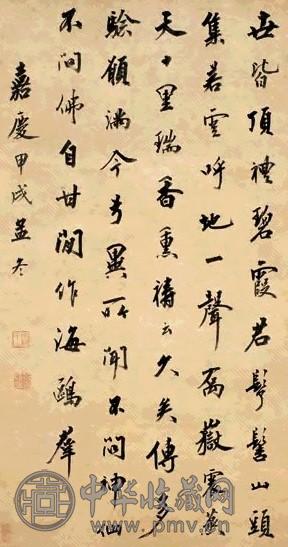 世皆頂禮碧霞君髻山頭
集若雲呼地一聲嶽震爇
天十里瑞香熏禱云久矣傳多
驗願滿今兮異所聞不問神仙
不問佛自甘閒作海鷗羣
嘉慶甲戌孟冬
中华收藏网
www.pmv.cn